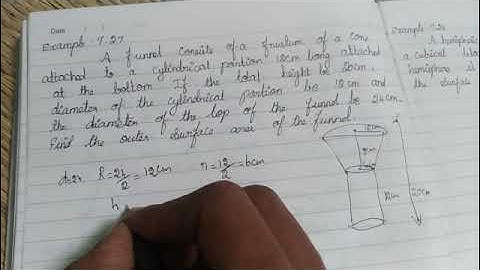 Date
Example 7.27
A funnel consists of a frustum of a cone
attached to a cylindrical portion 12cm long attached
at the bottom. If the total height be 20cm.
diameter of the cylindrical portion be 12cm and
the diameter of the top of the funnel be 24cm.
Find the outer surface area of the funnel.
R = 24/2 = 12cm
r = 12/2 = 6cm
h
12cm
8cm
12cm
20cm
Example 7.28
A hemispheric
a cubical bloc
hemisphere is
the surface